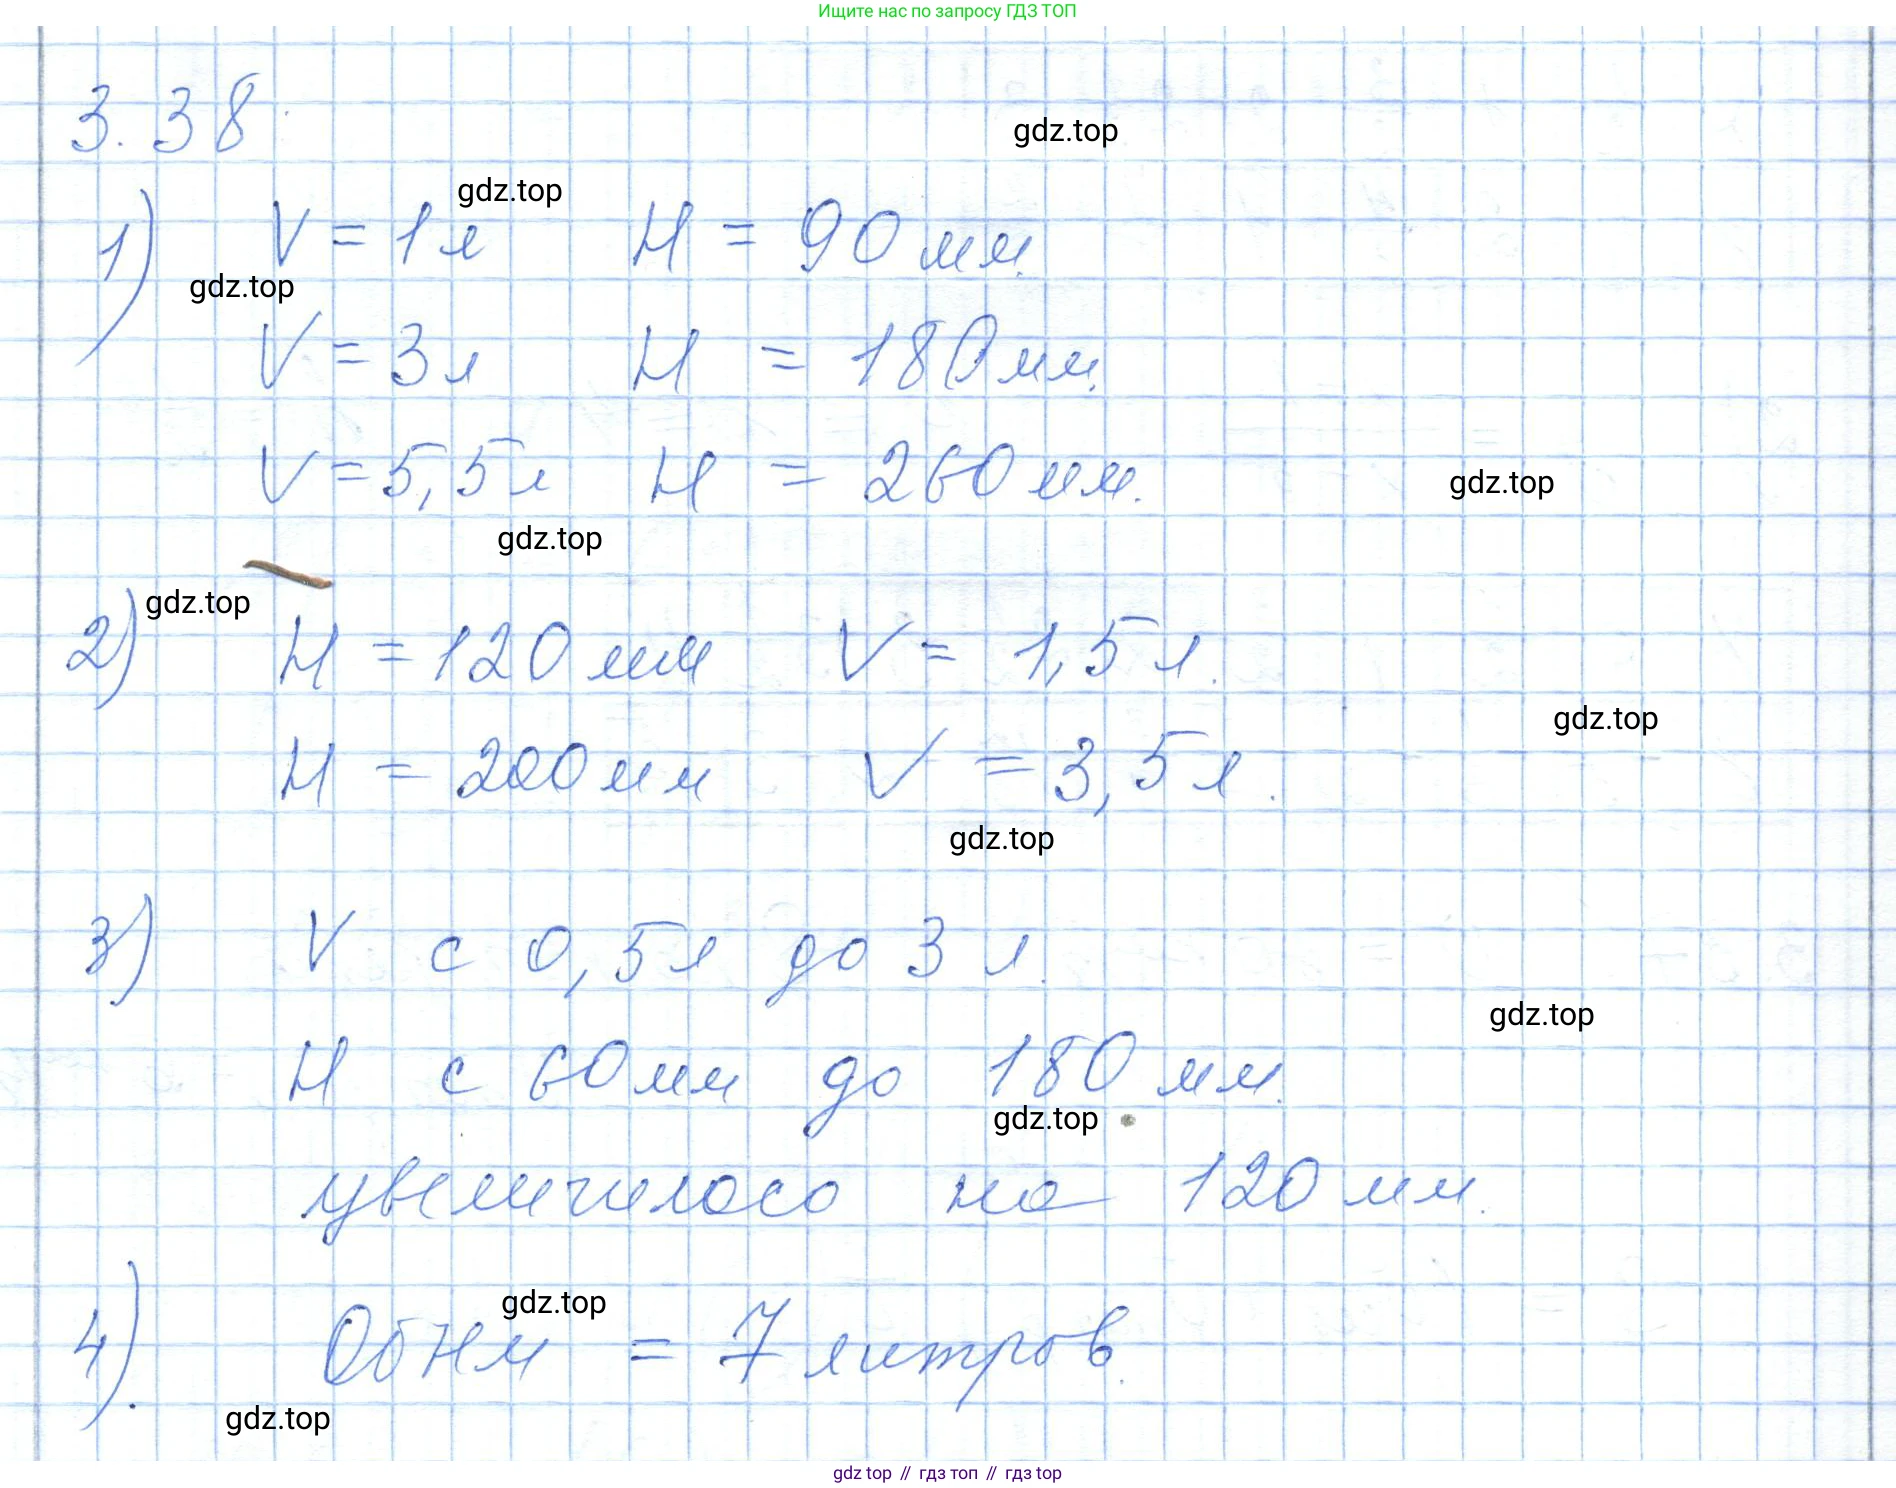 Ищите нас по запросу ГДЗ ТОП
3.38
gdz.top
gdz.top
1) V = 1 л H = 90 мм.
gdz.top
V = 3 л H = 180 мм.
V = 5,5 л H = 260 мм.
gdz.top
gdz.top
gdz.top
2) H = 120 мм V = 1,5 л.
gdz.top
H = 200 мм V = 3,5 л.
gdz.top
3) V с 0,5 л до 3 л.
gdz.top
H с 60 мм до 180 мм.
gdz.top
увеличилось на 120 мм.
gdz.top
4). = 7 литров.
gdz.top
gdz top // гдз топ // гдз top